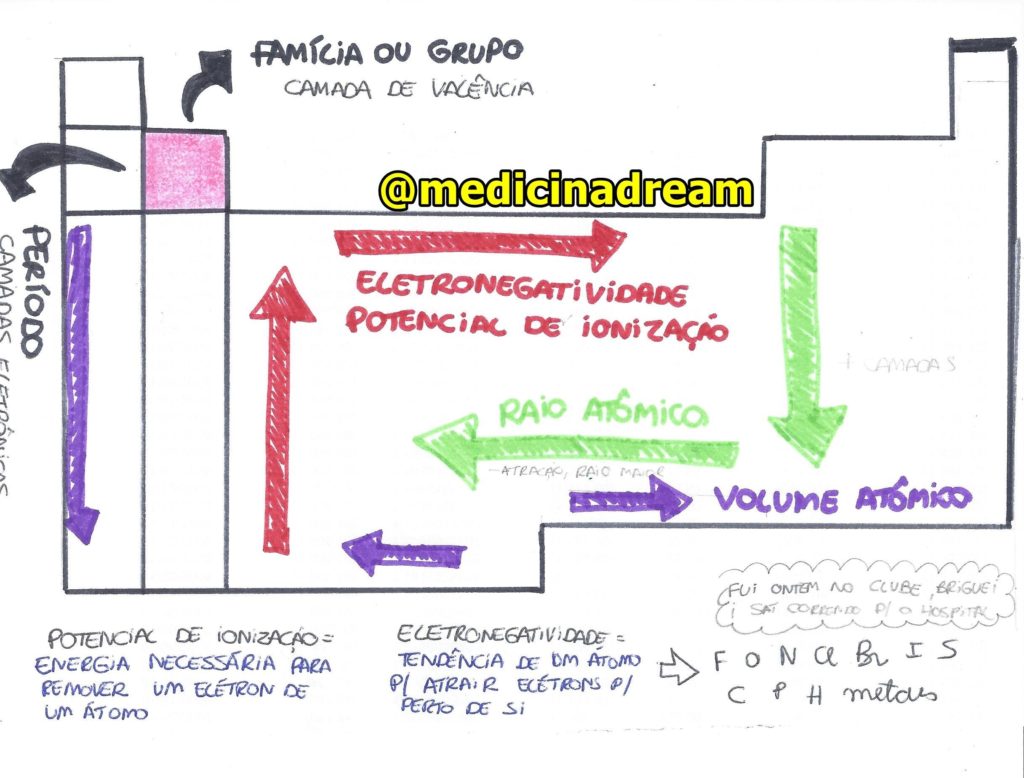 FAMÍLIA OU GRUPO
CAMADA DE VALÊNCIA
@medicinadream
PERÍODO
CAMADAS ELETRÔNICAS
ELETRONEGATIVIDADE
POTENCIAL DE IONIZAÇÃO
+ CAMADAS
RAIO ATÔMICO
- ATRAÇÃO, RAIO MAIOR
VOLUME ATÔMICO
FUI ONTEM NO CLUBE, BRIGUEI
I SAÍ CORRENDO P/ O HOSPITAL
POTENCIAL DE IONIZAÇÃO =
ENERGIA NECESSÁRIA PARA
REMOVER UM ELÉTRON DE
UM ÁTOMO
ELETRONEGATIVIDADE =
TENDÊNCIA DE UM ÁTOMO
P/ ATRAIR ELÉTRONS P/
PERTO DE SI
F O N Cl Br I S
C P H metais